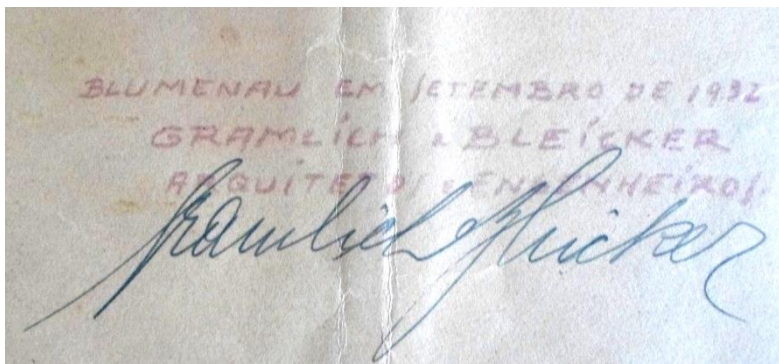 BLUMENAU EM SETEMBRO DE 1932
GRAMLICH & BLEICKER
ARQUITETOS e ENGENHEIROS.
Gramlich & Bleicker